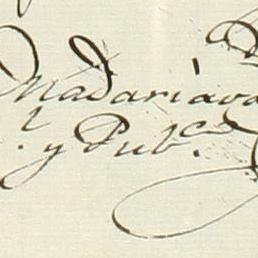 Madariava
l. y Pub.co